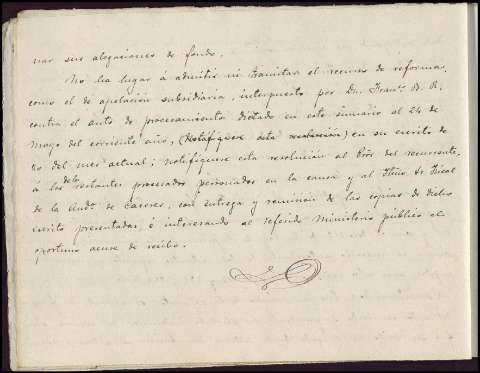 nar sus alegaciones de fondo.
No ha lugar á admitir ni tramitar el recurso de reforma,
como el de apelación subsidiaria, interpuesto por Dn. Franco. B. R.
contra el auto de procesamiento dictado en este sumario el 24 de
Mayo del corriente año, (Notifíquese esta resolución) en su escrito de
del mes actual; notifíquese esta resolución al Pror. del recurrente,
á los de los restantes procesados personados en la causa y al Ilmo. Sr. Fiscal
de la Auda. de Cáceres, con entrega y remisión de las copias de dicho
escrito presentadas, é interesando al referido Ministerio público el
oportuno acuse de recibo.